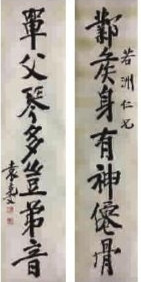 鄴矦身有神僊骨
若洲仁兄
單父琴多豈弟音
袁克文